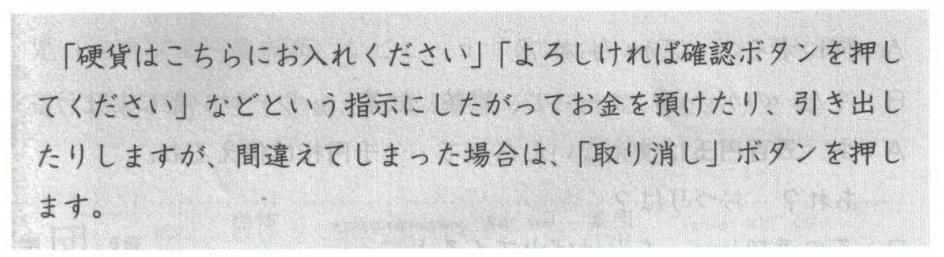 「硬貨はこちらにお入れください」「よろしければ確認ボタンを押し
てください」などという指示にしたがってお金を預けたり、引き出し
たりしますが、間違えてしまった場合は、「取り消し」ボタンを押し
ます。